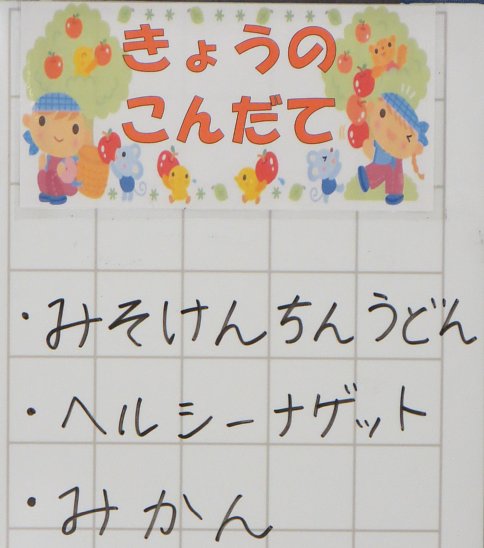 きょうの
こんだて
・みそけんちんうどん
・ヘルシーナゲット
・みかん